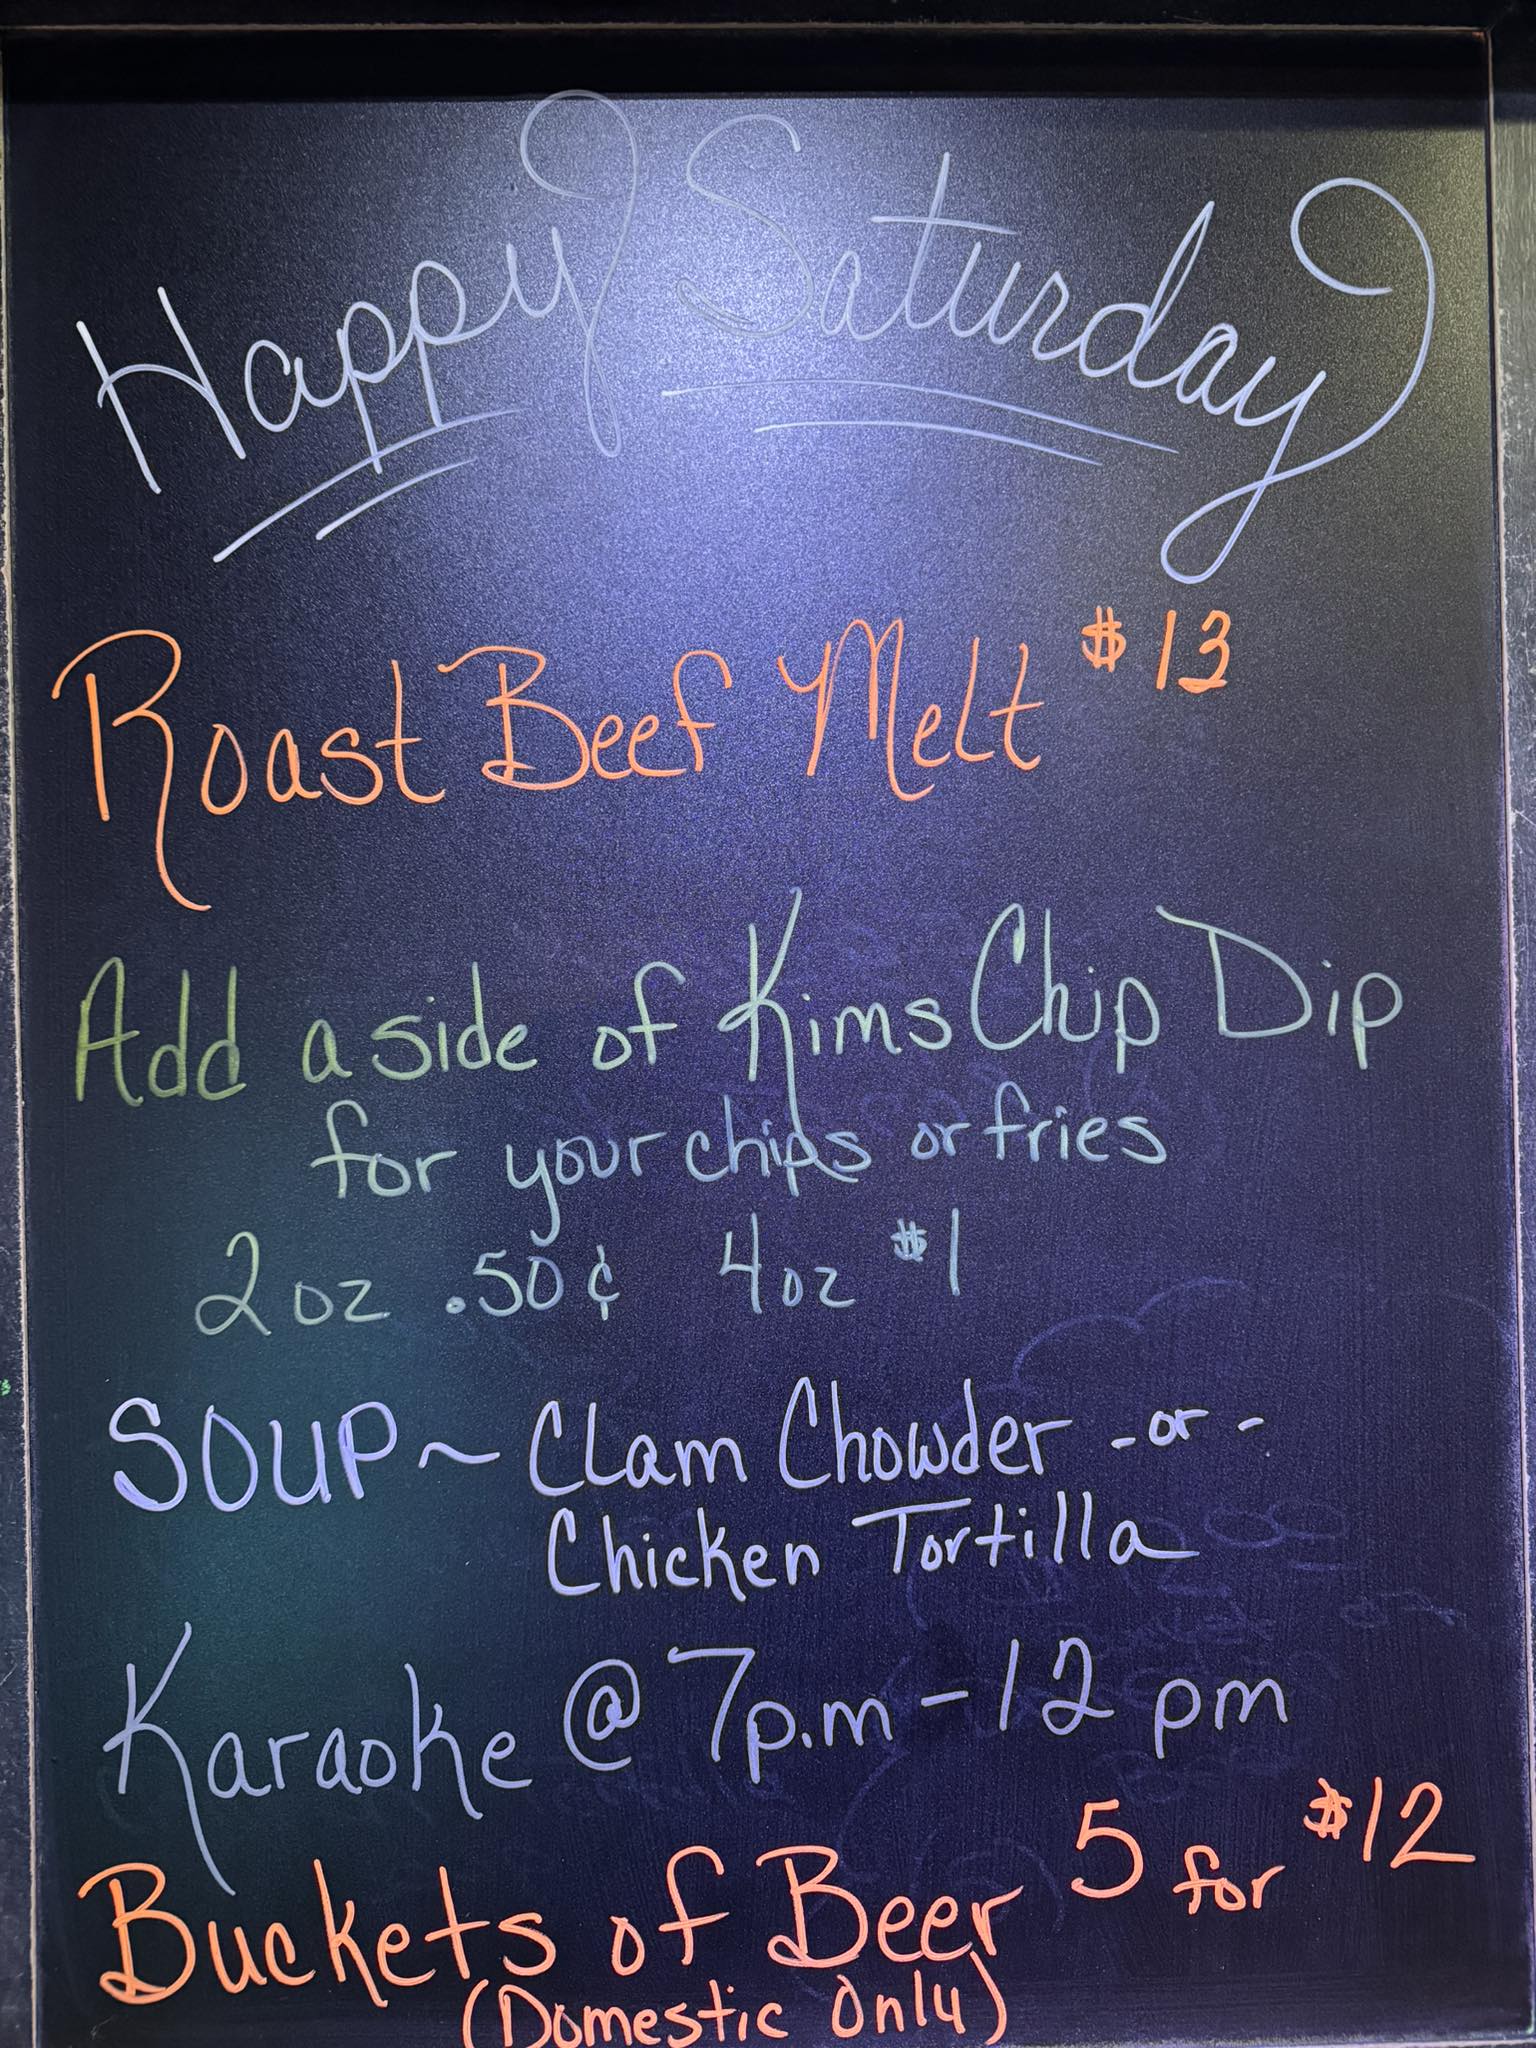 Happy Saturday
Roast Beef Melt $13
Add a side of Kims Chip Dip
for your chips or fries
2 oz .50¢ 4oz $1
SOUP ~ Clam Chowder -or-
Chicken Tortilla
Karaoke @ 7p.m - 12 pm
Buckets of Beer 5 for $12
(Domestic Only)